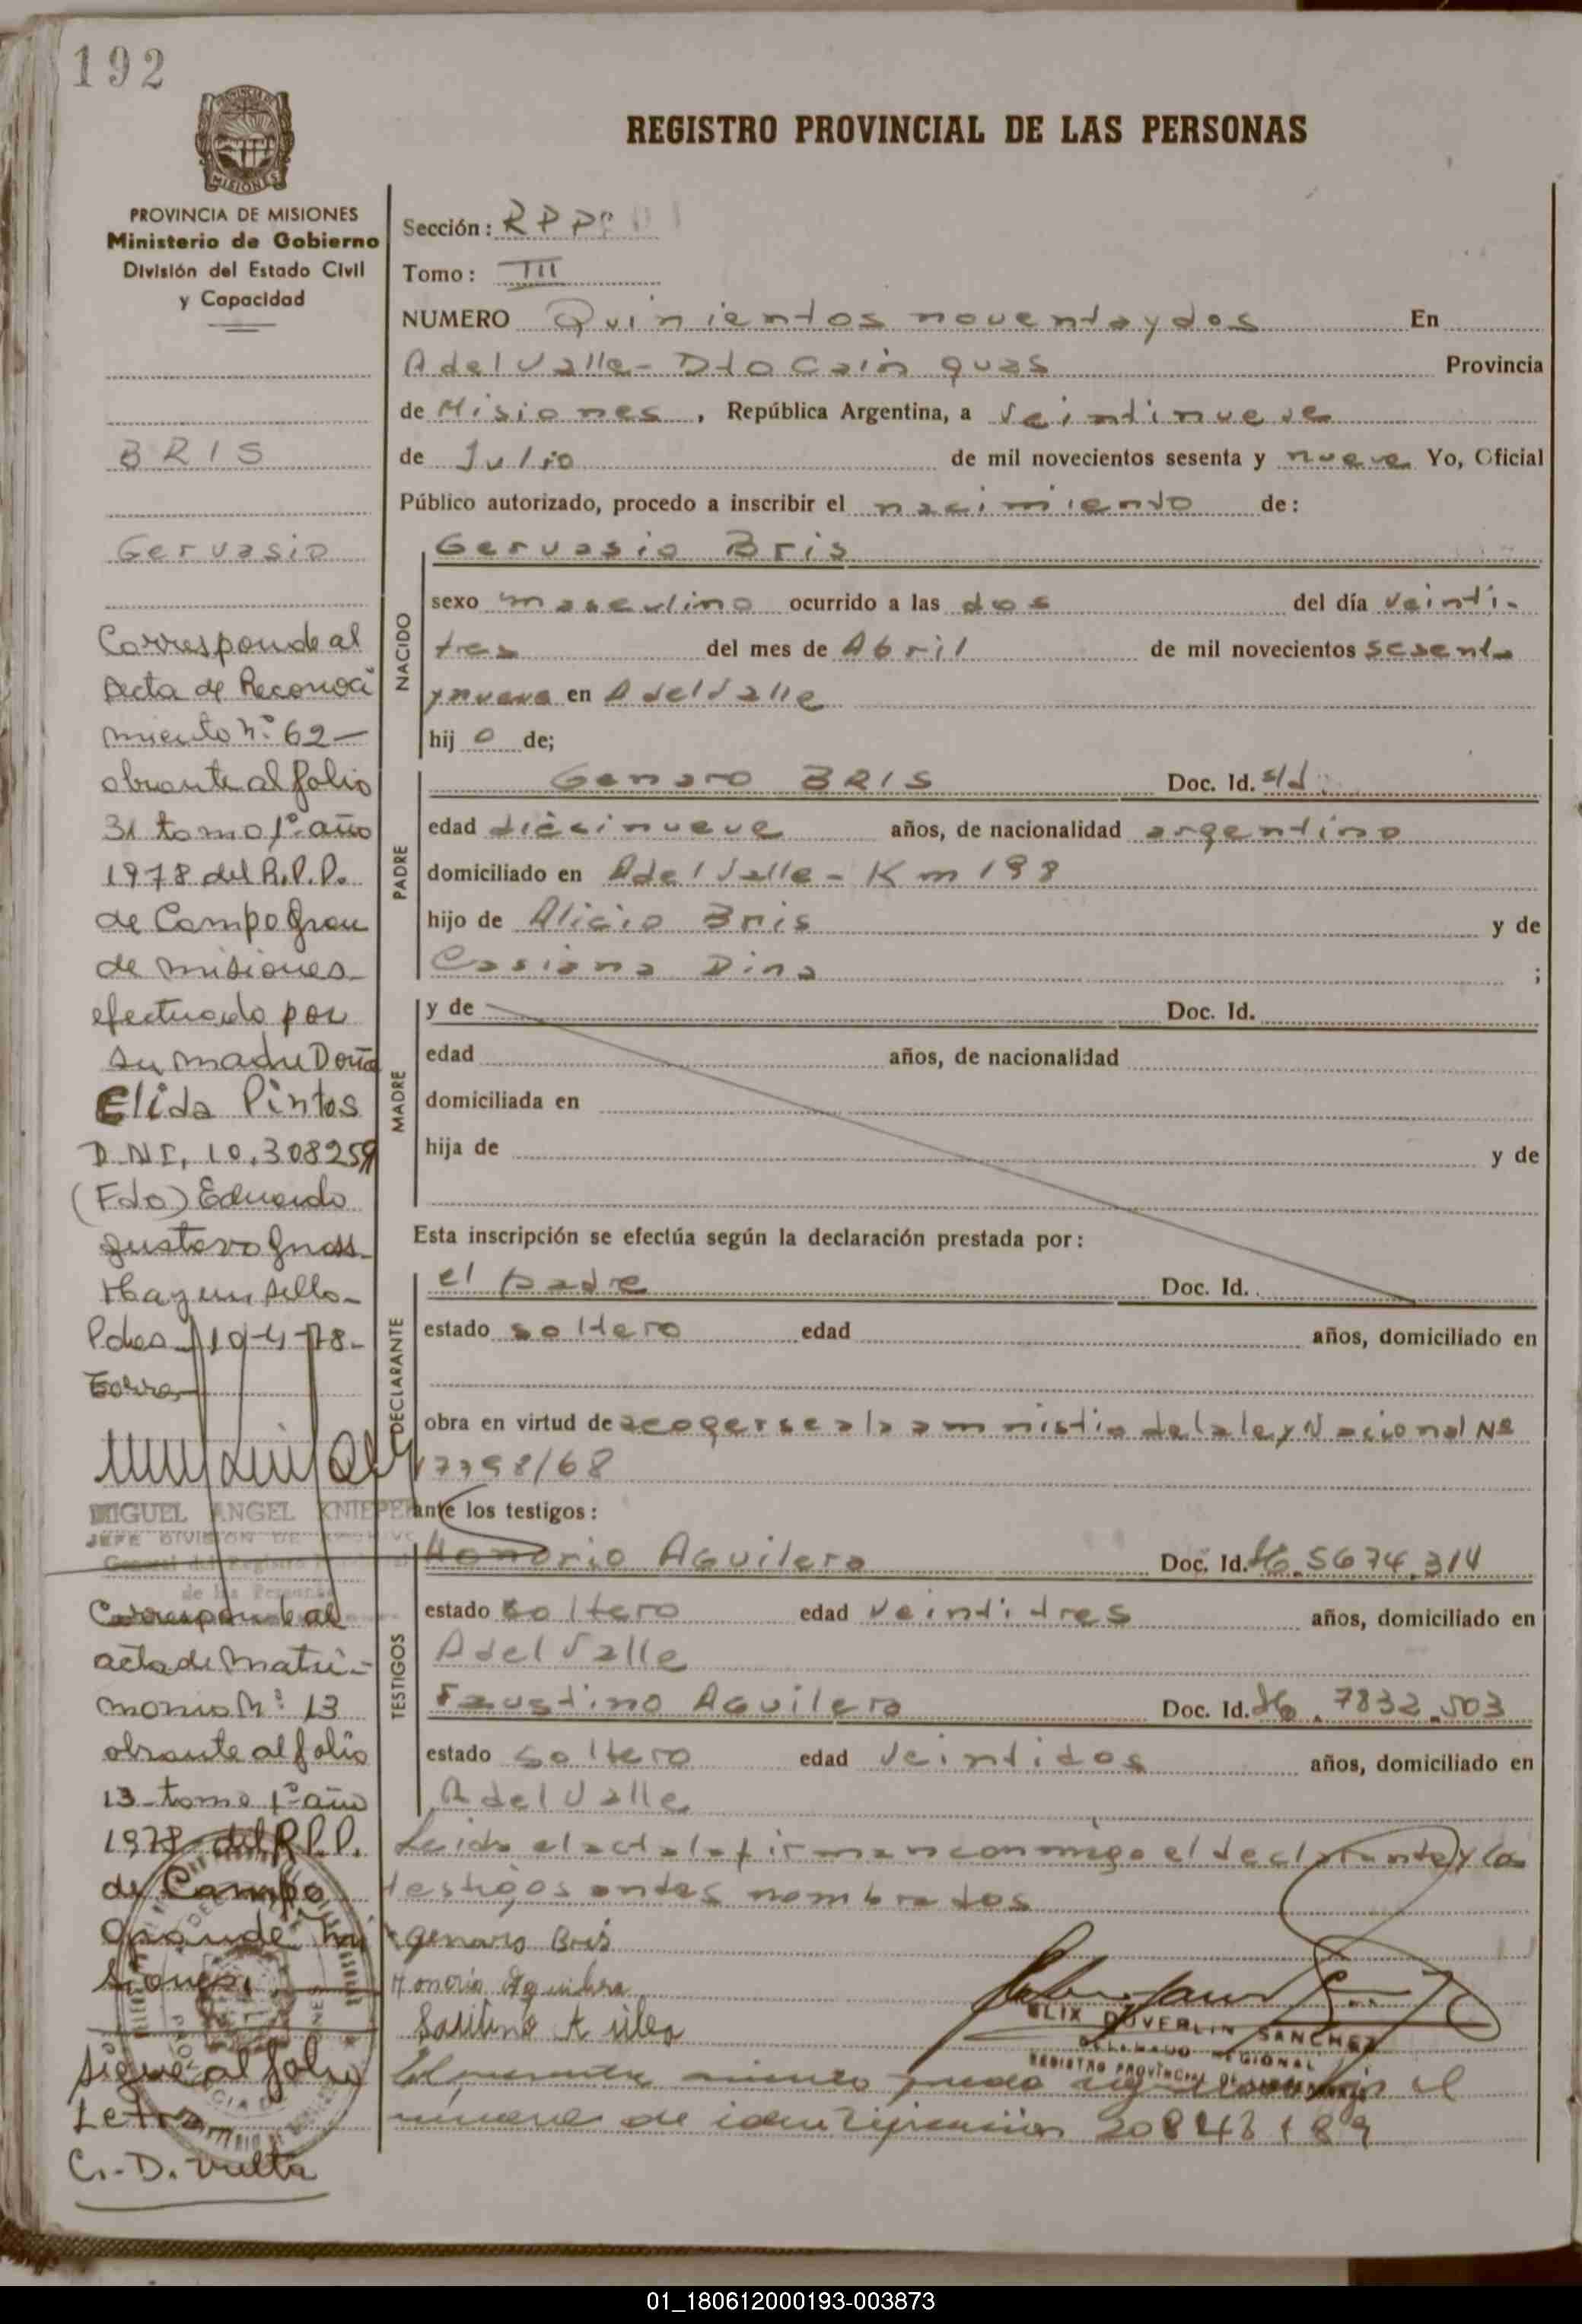 192
REGISTRO PROVINCIAL DE LAS PERSONAS
MISIONES
PROVINCIA DE MISIONES
Ministerio de Gobierno
División del Estado Civil
y Capacidad
BRIS
Gervasio
Corresponde al
Acta de Reconoci
miento nº 62 -
obrante al folio
31 tomo 1º año
1978 del R.P.P.
de Campo Gran
de Misiones
efectuado por
su madre Doña
Elida Pintos
D.N.I. 10.308259
(Fdo) Eduardo
Gustavo
Hay un sello-
Pdas 10-4-78-
MIGUEL ANGEL KNIEPER
JEFE DIVISION DE
General del Registro
de las Personas
Corresponde al
acta de Matri-
monio Nº 13
obrante al folio
13 - tomo 1º año
1978 del R.P.P.
de Campo
Grande Mi
siones.
Sigue al folio
Letra
C.-D. vuelta
Sección: RPP
Tomo: III
NUMERO Quinientos noventa y dos En
A del Valle - Dto Cainguas Provincia
de Misiones, República Argentina, a Veintinueve
de Julio de mil novecientos sesenta y nueve Yo, Oficial
Público autorizado, procedo a inscribir el nacimiento de:
NACIDO
Gervasio Bris
sexo masculino ocurrido a las dos del día veinti-
tres del mes de Abril de mil novecientos sesenta
y nueve en A del Valle
hij o de;
PADRE
Genaro BRIS Doc. Id. s/d.
edad diecinueve años, de nacionalidad argentino
domiciliado en A del Valle - Km 198
hijo de Alicio Bris y de
Casiana Dina ;
MADRE
y de Doc. Id.
edad años, de nacionalidad
domiciliada en
hija de y de
Esta inscripción se efectúa según la declaración prestada por:
DECLARANTE
el padre Doc. Id.
estado soltero edad años, domiciliado en
obra en virtud de acogerse a la amnistia de la ley Nacional Nº
17798/68
ante los testigos:
TESTIGOS
Honorio Aguilera Doc. Id. 5674.314
estado soltero edad veintitres años, domiciliado en
A del Valle
Faustino Aguilera Doc. Id. 7832.503
estado soltero edad veintidos años, domiciliado en
A del Valle
Leida el acta la firman conmigo el declarante y los
testigos antes nombrados
genaro Bris
Honorio
FELIX DUVERLIN SANCHEZ
DELEGADO REGIONAL
REGISTRO PROVINCIAL DE LAS PERSONAS
El
numero de identificacion 20843189
01_180612000193-003873